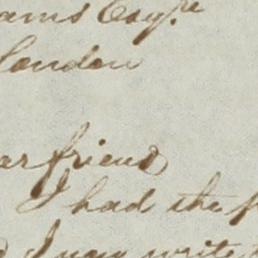 ams Esqre
London
ar friend
I had the
I now write